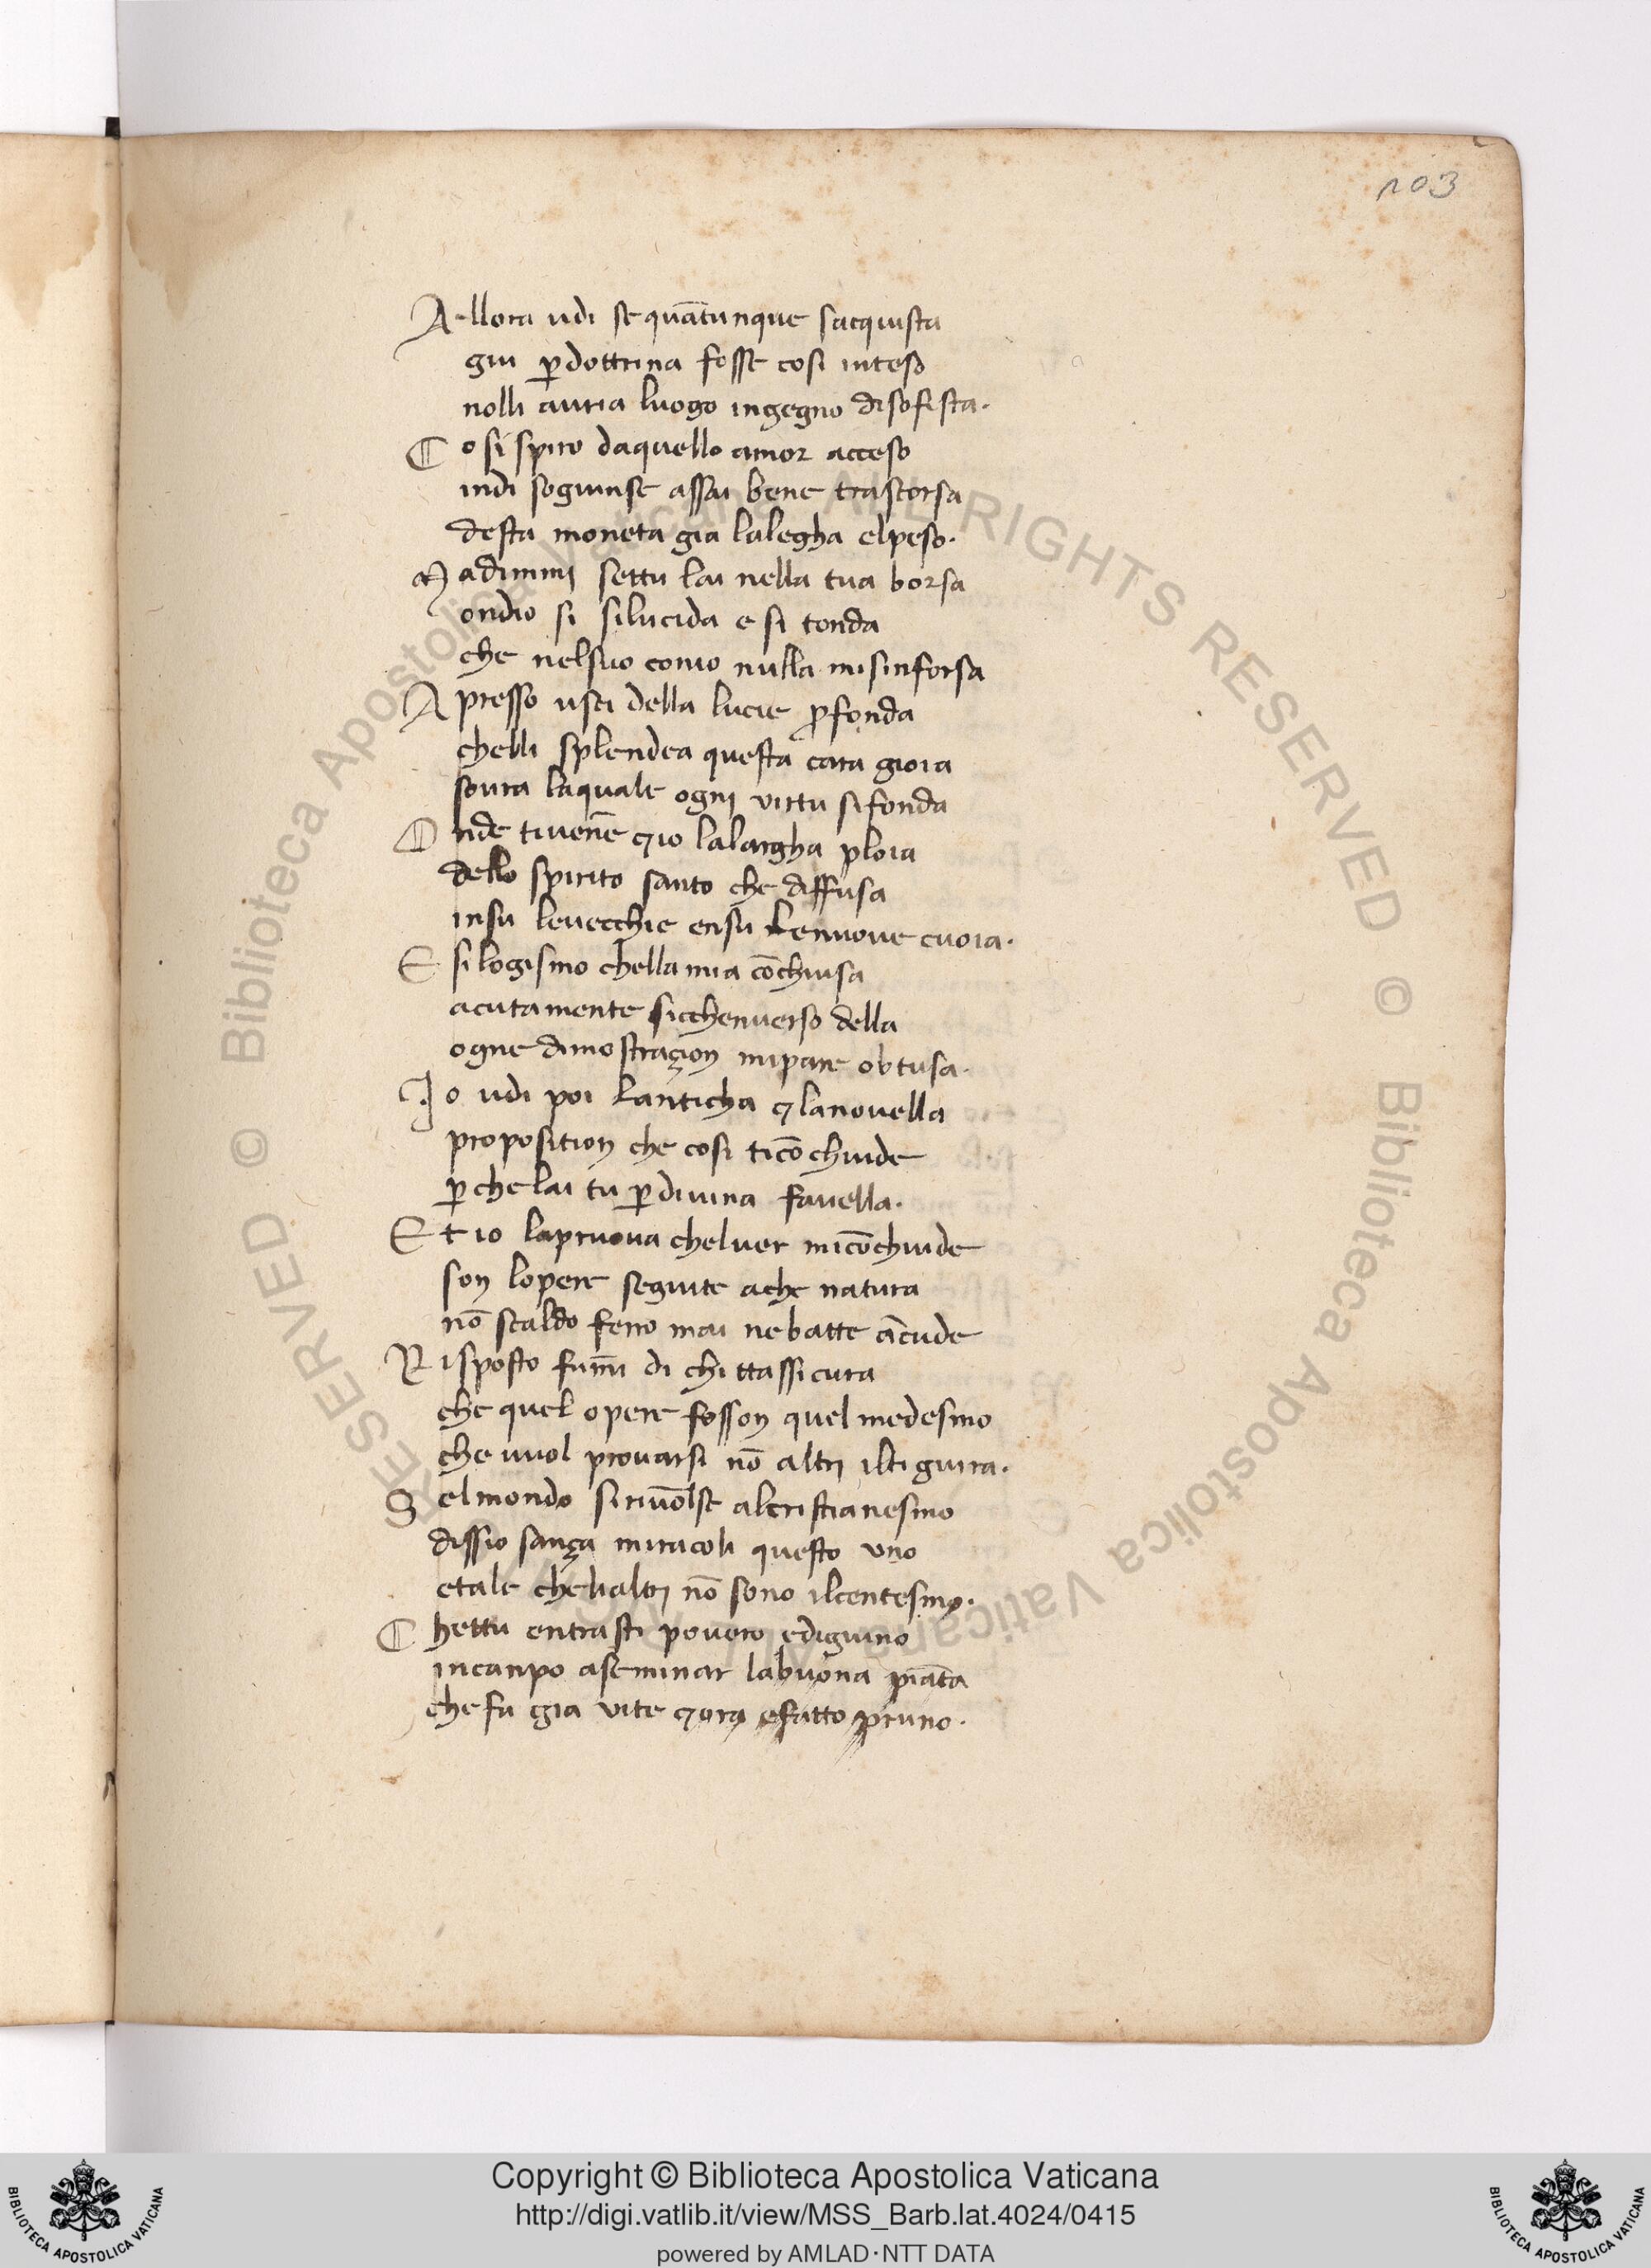 103
Allora udi se quātunque sacquista
giu ꝑdottrina fosse cosi inteso
nolli auria luogo ingegno disofista.
Cosi spiro daquello amor acceso
indi sogiunse assai bene trascorsa
desta moneta gia lalegha elpeso.
Madimmi settu lai nella tua borsa
ondio si silucida e si tonda
che nelsuo conio nulla misinforsa
Apresso usci della lucie ꝓfonda
chelli splendea questa cara gioia
soura laquale ogni virtu sifonda
Onde tiuenē ⁊io lalargha ploia
dello spirito santo che diffusa
insu leuecchie ensu lenuoue cuoia.
E silogismo chella mia cōchiusa
acutamente sicchenuerso della
ogne dimostraçion mipare obtusa.
Io udi poi lanticha ⁊lanouella
proposition che cosi ticōchiude
ꝑche lai tu ꝑdiuina fauella.
Et io lapruoua cheluer micōchiude
son lopere seguite ache natura
nō scaldo ferro mai nebatte ācude
Risposto fūmi di chi ttassicura
che quel opere fosson quel medesmo
che vuol prouarsi nō altri ilti giura.
Selmondo siriuōlse alcristianesmo
dissio sança miracoli questo uno
etale chelialtri nō sono ilcentesmo.
Chettu entrasti pouero edigiuno
incanpo aseminar labuona piāta
chefu gia vite ⁊ora efatto pruno.
Copyright © Biblioteca Apostolica Vaticana
http://digi.vatlib.it/view/MSS_Barb.lat.4024/0415
powered by AMLAD·NTT DATA
BIBLIOTECA APOSTOLICA VATICANA
BIBLIOTECA APOSTOLICA VATICANA
© Biblioteca Apostolica Vaticana ALL RIGHTS RESERVED © Biblioteca Apostolica Vaticana ALL RIGHTS RESERVED